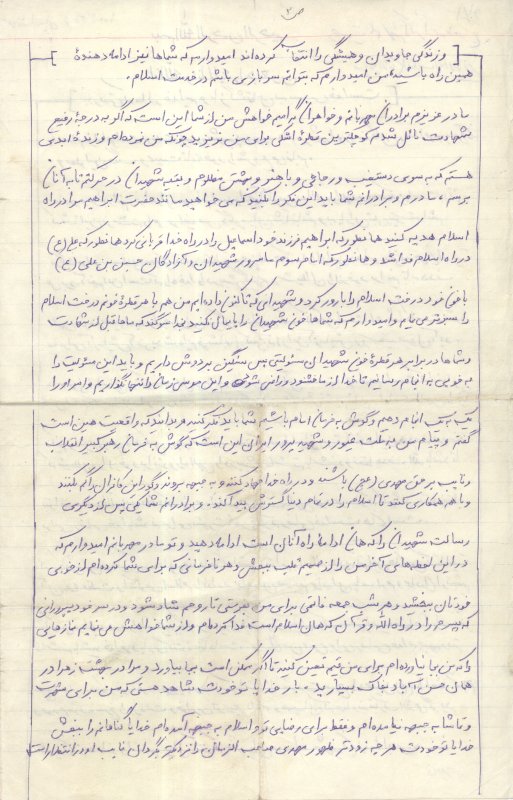 ص ۲
و زندگی جاویدان و همیشگی را انتخاب کرده‌اند امیدوارم که شماها نیز ادامه دهندۀ
همین راه باشید و من امیدوارم که بتوانم سربازی باشم در خدمت اسلام.
مادر عزیزم برادران مهربانم و خواهران گرامیم خواهش من از شما این است که اگر به درجۀ رفیع
شهادت نائل شدم کوچکترین قطرۀ اشکی برای من نریزید چونکه من نمرده‌ام و زندۀ ابدی
هستم که به سوی و با هنر و بهشتی مظلوم و بقیه شهیدان در حرکتم تا به آنان
برسم، مادرم و برادرانم شما باید این فکر را بکنید که می خواهید مانند حضرت ابراهیم مرا در راه
اسلام هدیه کنید همانطور که ابراهیم فرزند خود اسماعیل را در راه خدا قربانی کرد همانطور که علی (ع)
در راه اسلام فدا شد و همانطور که امام سوم ما سرور شهیدان و آزادگان حسین بن علی (ع)
با خون خود درخت اسلام را بارور کرد و شهیدانی که تاکنون داده‌ایم من هم با هر قطرۀ خونم درخت اسلام
را سبزتر می نمایم و امیدوارم که شماها خون شهیدان را پایمال نکنید بخدا سوگند که ماها قبل از شهادت
و شما در برابر هر قطرۀ خون شهیدان مسئولیتی بس سنگین بر دوش داریم و باید این مسئولیت را
به خوبی به انجام رسانیم تا خدا از ما خشنود و راضی شود و این موسی زمان را تنها نگذاریم و اوامر او را
یک به یک انجام دهیم و گوش به فرمان امام باشیم شما باید فکر کنید و بدانید که واقعیت همین است
گفتم و پیام من به ملت غیور و شهید پرور ایران این است که گوش به فرمان رهبر کبیر انقلاب
و نایب بر حق مهدی (عج) باشند و در راه خدا جهاد کنند و به جبهه بروند و گور این کافران را بکنند
و با هم همکاری کنند تا اسلام را در تمام دنیا گسترش پیدا کند. و برادرانم شما یکی پس از دیگری
رسالت شهیدان را که همان ادامۀ راه آنان است ادامه دهید و تو مادر مهربانم امیدوارم که
در این لحظه‌های آخر من را از صمیم قلب ببخش و هر نافرمانی که برای شما کرده‌ام از خوبی
خودتان ببخشید و هر شب جمعه فاتحه‌ای برای من بفرستی تا روحم شاد شود و در سر خود بپرورانی
که پسرم را در راه الله و قرآن که همان اسلام است فدا کرده‌ام و از شما خواهش می نمایم نمازهایی
را که من بجا نیاورده‌ام برای من قیم تعیین کنید تا اگر ممکن است بجا بیاورد و مرا در بهشت زهرا در
همان حسن آباد بخاک بسپارید. بار خدایا تو خودت شاهد هستی که من برای شهرت
و تماشا به جبهه نیامده‌ام و فقط برای رضایی تو و اسلام به جبهه آمده‌ام خدایا گناهانم را ببخش
خدایا تو خودت هر چه زودتر ظهور مهدی صاحب الزمان را نزدیکتر گردان نایب او در انتظار است